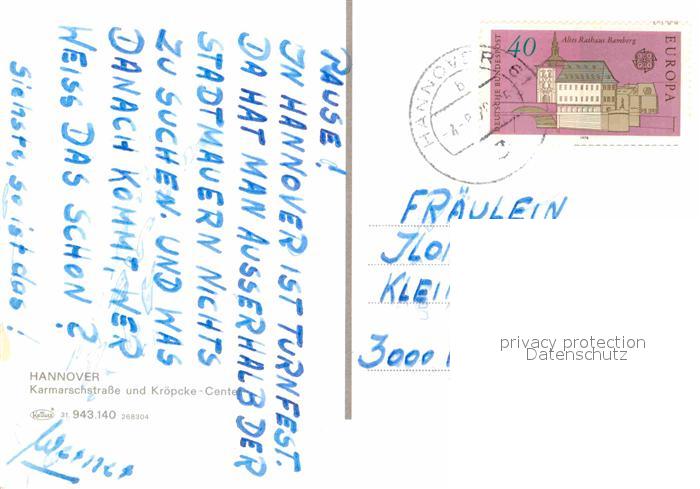 PAUSE!
IN HANNOVER IST TURNFEST.
DA HAT MAN AUSSERHALB DER
STADTMAUERN NICHTS
ZU SUCHEN. UND WAS
DANACH KOMMT, WER
WEISS DAS SCHON?
Siehste, so ist das!
Werner
HANNOVER
Karmarschstraße und Kröpcke-Center
31. 943.140 268304
40
Altes Rathaus Bamberg
DEUTSCHE BUNDESPOST
EUROPA
1978
HANNOVER
FRÄULEIN
3000
privacy protection
Datenschutz